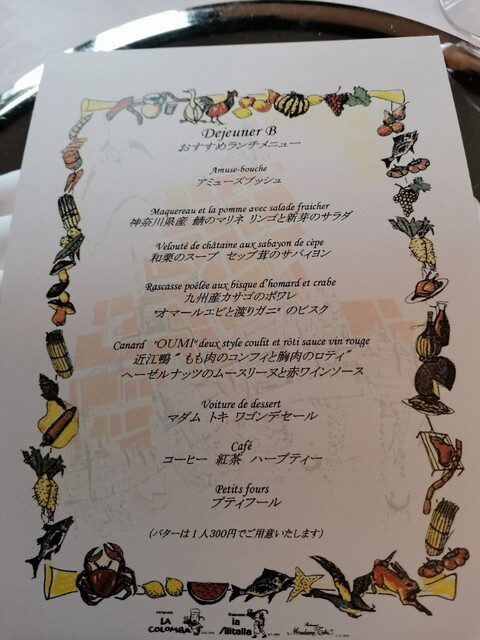 Dejeuner B
おすすめランチメニュー
Amuse-bouche
アミューズブッシュ
Maquereau et la pomme avec salade fraicher
神奈川県産 鯖のマリネ リンゴと新芽のサラダ
Velouté de châtaine aux sabayon de cèpe
和栗のスープ セップ茸のサバイヨン
Rascasse poêlée aux bisque d'homard et crabe
九州産カサゴのポワレ
"オマールエビと渡りガニ" のビスク
Canard "OUMI" deux style coufit et rôti sauce vin rouge
近江鴨 " もも肉のコンフィと胸肉のロティ"
ヘーゼルナッツのムースリーヌと赤ワインソース
Voiture de dessert
マダム トキ ワゴンデセール
Café
コーヒー 紅茶 ハーブティー
Petits fours
プティフール
(バターは1人300円でご用意いたします)
LA COLOMBA
la Alitalia
Madame Toki